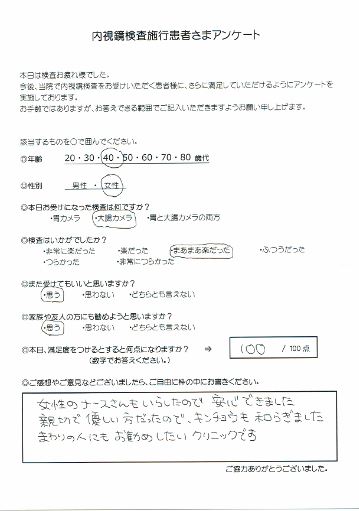 内視鏡検査施行患者さまアンケート
本日は検査お疲れ様でした。
今後、当院で内視鏡検査をお受けいただく患者様に、さらに満足していただけるようにアンケートを
実施しております。
お手数ではありますが、お答えできる範囲でご記入いただきますようお願い申し上げます。
該当するものを〇で囲んでください。
◎年齢 20・30・40・50・60・70・80 歳代
◎性別 男性 ・ 女性
◎本日お受けになった検査は何ですか？
・胃カメラ ・大腸カメラ ・胃と大腸カメラの両方
◎検査はいかがでしたか？
・非常に楽だった ・楽だった ・まあまあ楽だった ・ふつうだった
・つらかった ・非常につらかった
◎また受けてもいいと思いますか？
・思う ・思わない ・どちらとも言えない
◎家族や友人の方にも勧めようと思いますか？
・思う ・思わない ・どちらとも言えない
◎本日、満足度をつけるとすると何点になりますか？ ⇒ 100 / 100 点
（数字でお答えください。）
◎ご感想やご意見などございましたら、ご自由に枠の中にお書きください。
女性のナースさんもいらしたので 安心できました
親切で優しい方だったので、キンチョウも和らぎました
まわりの人にもお勧めしたいクリニックです
ご協力ありがとうございました。